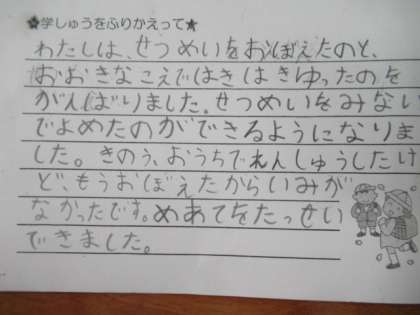 ★学しゅうをふりかえって★
わたしは、せつめいをおぼえたのと、
おおきなこえではきはきゆったのを
がんばりました。せつめいをみない
でよめたのができるようになりま
した。きのう、おうちでれんしゅうしたけ
ど、もうおぼえたからいみが
なかったです。めあてをたっせい
できました。